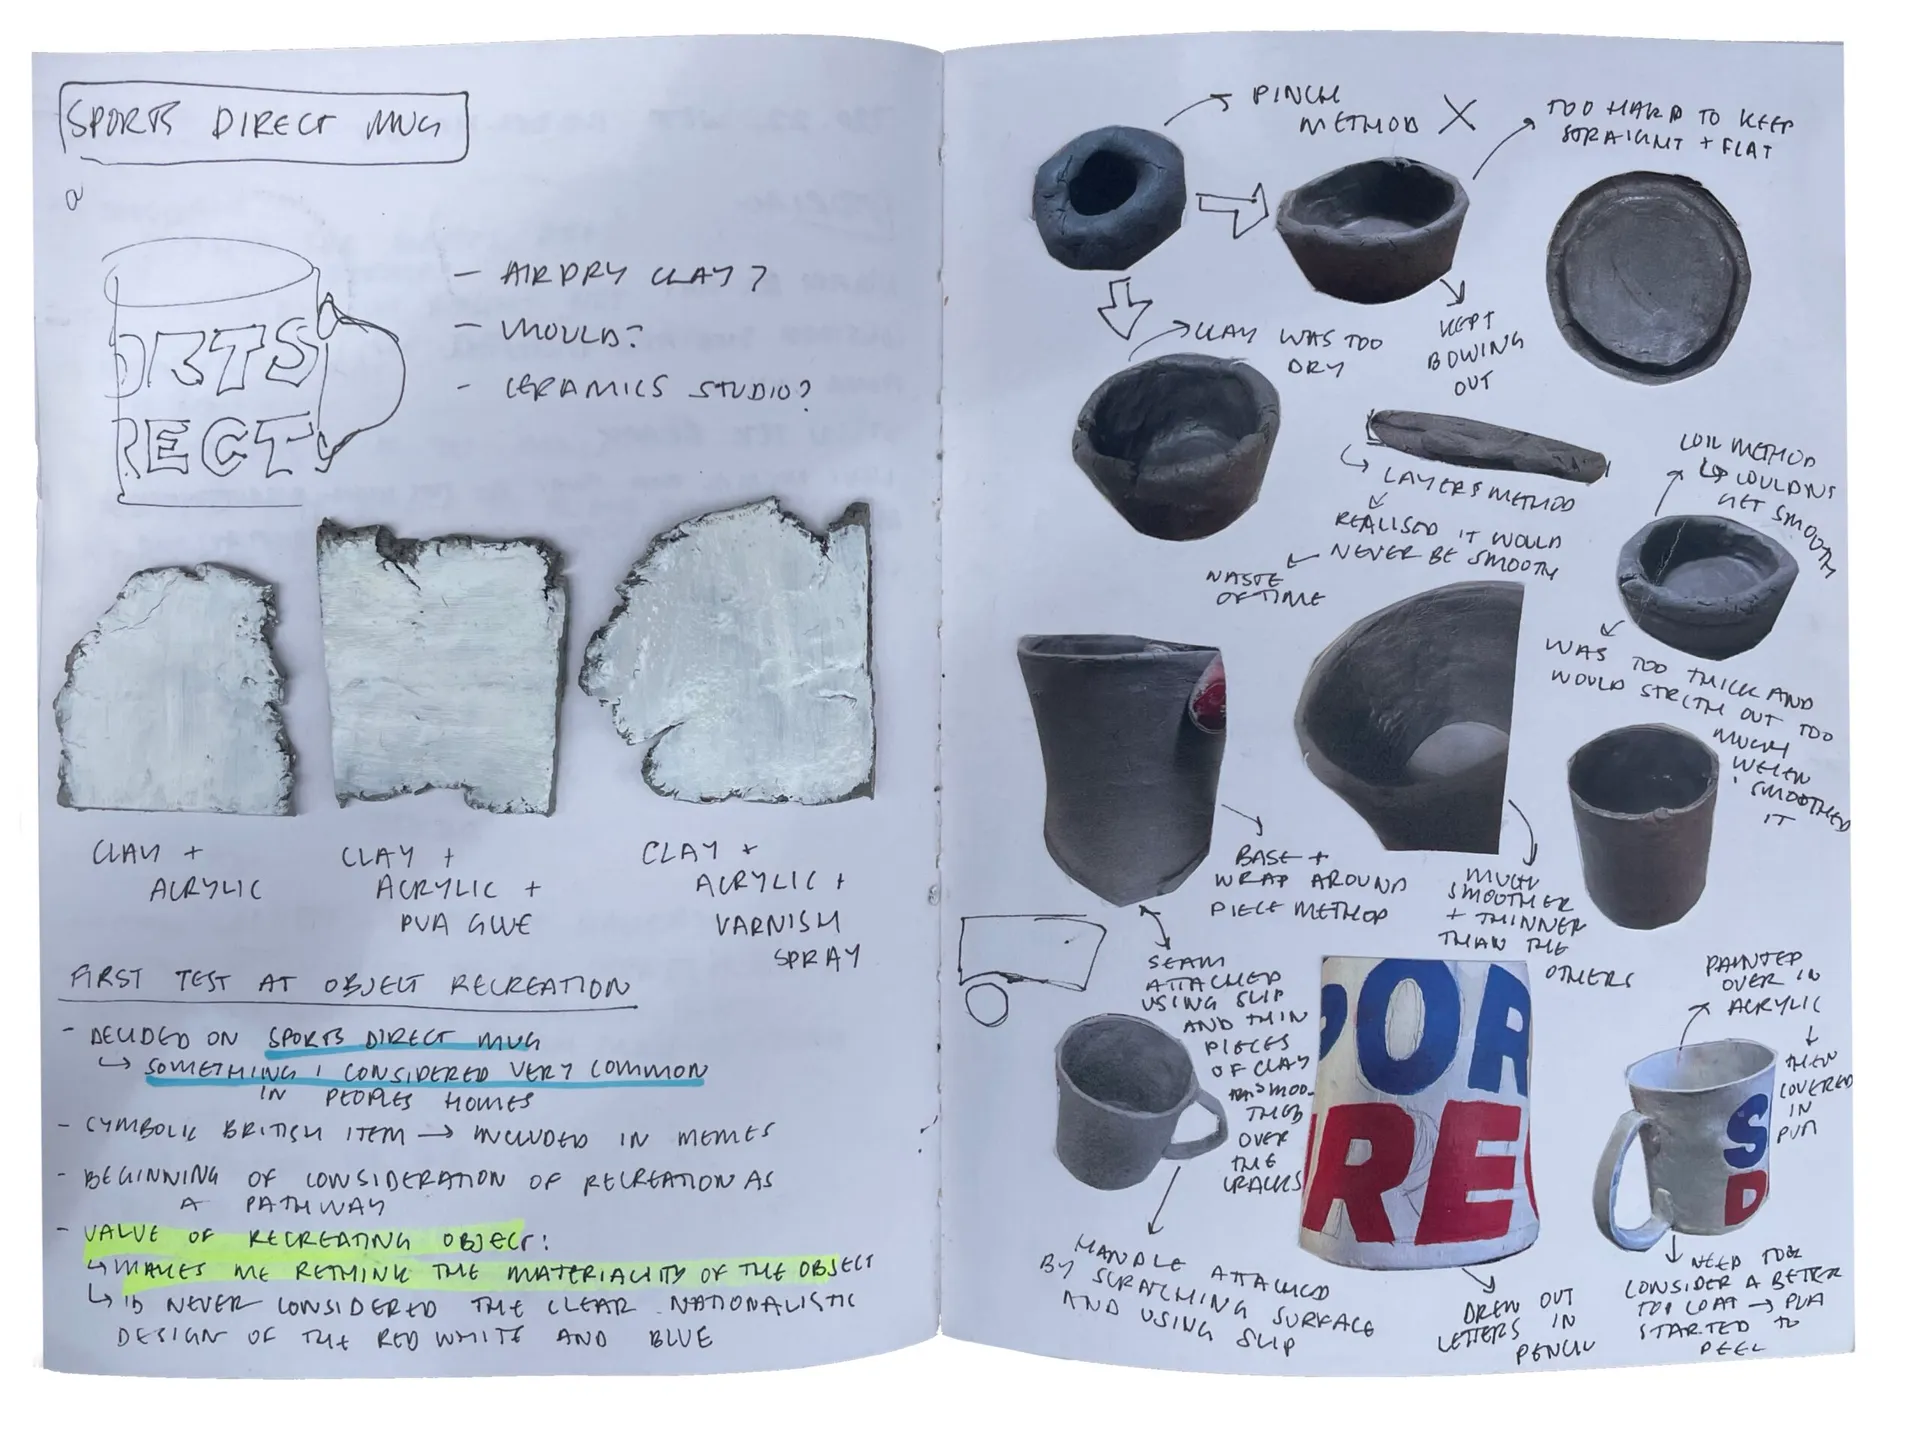 SPORTS DIRECT MUG
ORTS
RECT
- AIR DRY CLAY?
- MOULD?
- CERAMICS STUDIO?
CLAY +
ACRYLIC
CLAY +
ACRYLIC +
PVA GLUE
CLAY +
ACRYLIC +
VARNISH
SPRAY
FIRST TEST AT OBJECT RECREATION
- DECIDED ON SPORTS DIRECT MUG
↳ SOMETHING I CONSIDERED VERY COMMON
IN PEOPLES HOMES
- CYMBOLIC BRITISH ITEM → INCLUDED IN MEMES
- BEGINNING OF CONSIDERATION OF RECREATION AS
A PATHWAY
- VALUE OF RECREATING OBJECT:
↳ MAKES ME RETHINK THE MATERIALITY OF THE OBJECT
↳ ID NEVER CONSIDERED THE CLEAR NATIONALISTIC
DESIGN OF THE RED WHITE AND BLUE
PINCH
METHOD X
TOO HARD TO KEEP
STRAIGHT + FLAT
KEPT
BOWING
OUT
CLAY WAS TOO
DRY
LAYERS METHOD
REALISED IT WOULD
NEVER BE SMOOTH
WASTE
OF TIME
COIL METHOD
↳ COULDNT
GET SMOOTH
WAS TOO THICK AND
WOULD STRETCH OUT TOO
MUCH
WHEN I
SMOOTHED
IT
BASE +
WRAP AROUND
PIECE METHOD
MUCH
SMOOTHER
+ THINNER
THAN THE
OTHERS
SEAM
ATTACHED
USING SLIP
AND THIN
PIECES
OF CLAY
SMOO-
THED
OVER
THE
CRACKS
HANDLE ATTACHED
BY SCRATCHING SURFACE
AND USING SLIP
POR
RE
DREW OUT
LETTERS IN
PENCIL
PAINTED
OVER IN
ACRYLIC
↓
THEN
COVERED
IN
PVA
S
D
NEED TO
CONSIDER A BETTER
TOP COAT → PVA
STARTED TO
PEEL